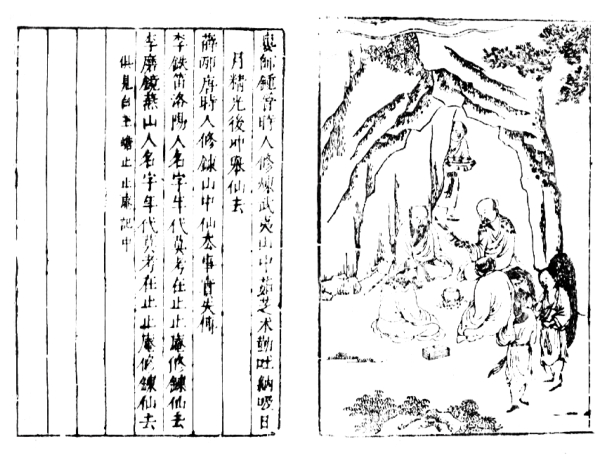 婁師鍾晉時人修煉武夷山中茹芝术勤吐納吸日
月精光後冲舉仙去
薛邴唐時人修鍊山中仙去事實失傳
李鉄笛洛陽人名字年代莫考在止止庵修鍊仙去
李磨鏡燕山人名字年代莫考在止止庵修鍊仙去
俱見白玉蟾止止庵記中